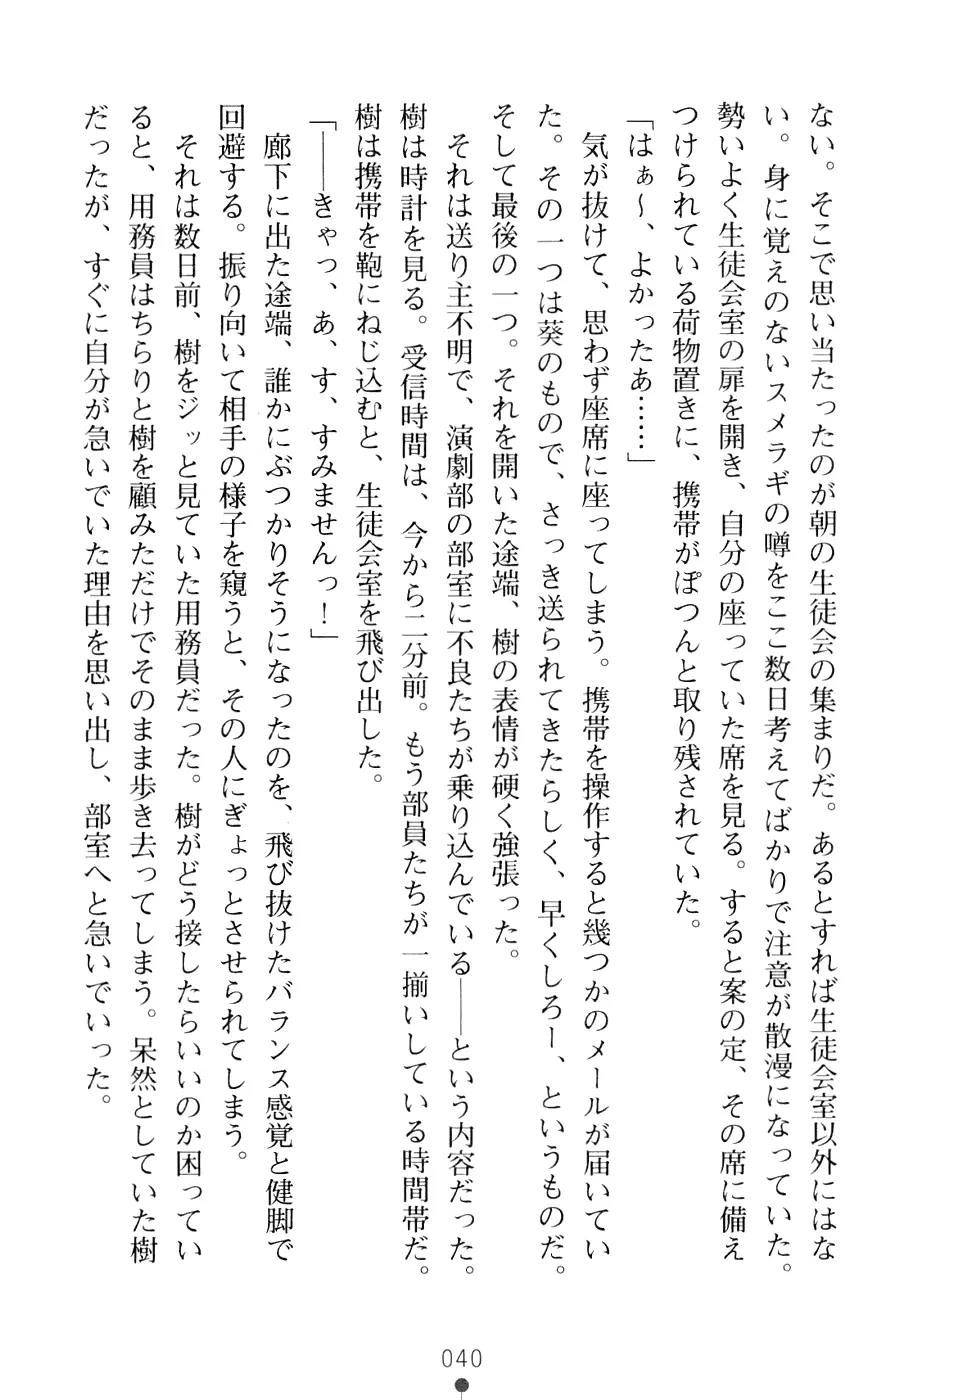 ない。そこで思い当たったのが朝の生徒会の集まりだ。あるとすれば生徒会室以外にはな
い。身に覚えのないスメラギの噂をここ数日考えてばかりで注意が散漫になっていた。
勢いよく生徒会室の扉を開き、自分の座っていた席を見る。すると案の定、その席に備え
つけられている荷物置きに、携帯がぽつんと取り残されていた。
「はぁ～、よかったあ……」
気が抜けて、思わず座席に座ってしまう。携帯を操作すると幾つかのメールが届いてい
た。その一つは葵のもので、さっき送られてきたらしく、早くしろー、というものだ。
そして最後の一つ。それを開いた途端、樹の表情が硬く強張った。
それは送り主不明で、演劇部の部室に不良たちが乗り込んでいる――という内容だった。
樹は時計を見る。受信時間は、今から二分前。もう部員たちが一揃いしている時間帯だ。
樹は携帯を鞄にねじ込むと、生徒会室を飛び出した。
「――きゃっ、あ、す、すみませんっ！」
廊下に出た途端、誰かにぶつかりそうになったのを、飛び抜けたバランス感覚と健脚で
回避する。振り向いて相手の様子を窺うと、その人にぎょっとさせられてしまう。
それは数日前、樹をジッと見ていた用務員だった。樹がどう接したらいいのか困ってい
ると、用務員はちらりと樹を顧みただけでそのまま歩き去ってしまう。呆然としていた樹
だったが、すぐに自分が急いでいた理由を思い出し、部室へと急いでいった。
040